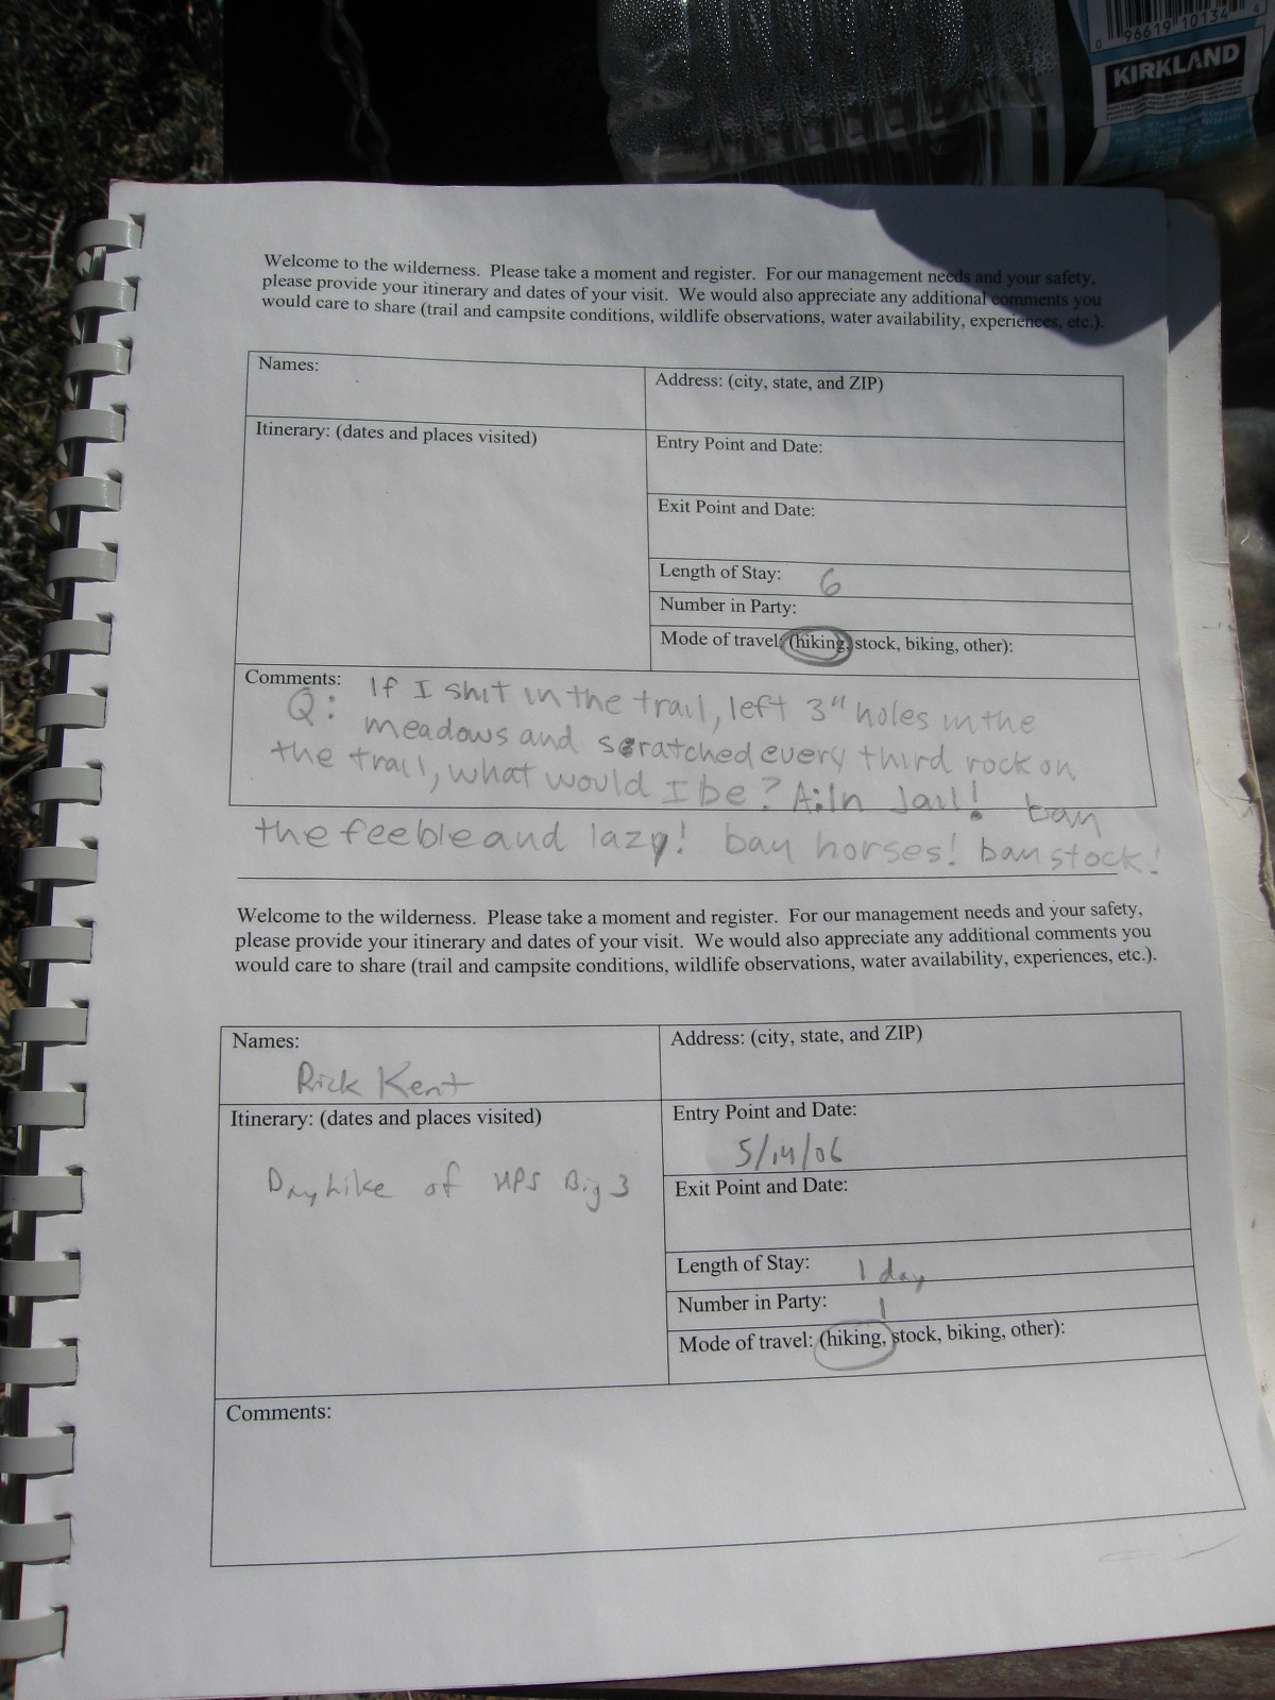 0 96619 10134 4
KIRKLAND
Welcome to the wilderness. Please take a moment and register. For our management needs and your safety,
please provide your itinerary and dates of your visit. We would also appreciate any additional comments you
would care to share (trail and campsite conditions, wildlife observations, water availability, experiences, etc.).
Names:
Address: (city, state, and ZIP)
Itinerary: (dates and places visited)
Entry Point and Date:
Exit Point and Date:
Length of Stay: 6
Number in Party:
Mode of travel: (hiking, stock, biking, other):
Comments:
Q: If I shit in the trail, left 3" holes in the
meadows and scratched every third rock on
the trail, what would I be? A: In Jail! ban
the feeble and lazy! ban horses! ban stock!
Welcome to the wilderness. Please take a moment and register. For our management needs and your safety,
please provide your itinerary and dates of your visit. We would also appreciate any additional comments you
would care to share (trail and campsite conditions, wildlife observations, water availability, experiences, etc.).
Names:
Rick Kent
Address: (city, state, and ZIP)
Itinerary: (dates and places visited)
Dayhike of HPS Big 3
Entry Point and Date:
5/14/06
Exit Point and Date:
Length of Stay: 1 day
Number in Party: 1
Mode of travel: (hiking, stock, biking, other):
Comments: